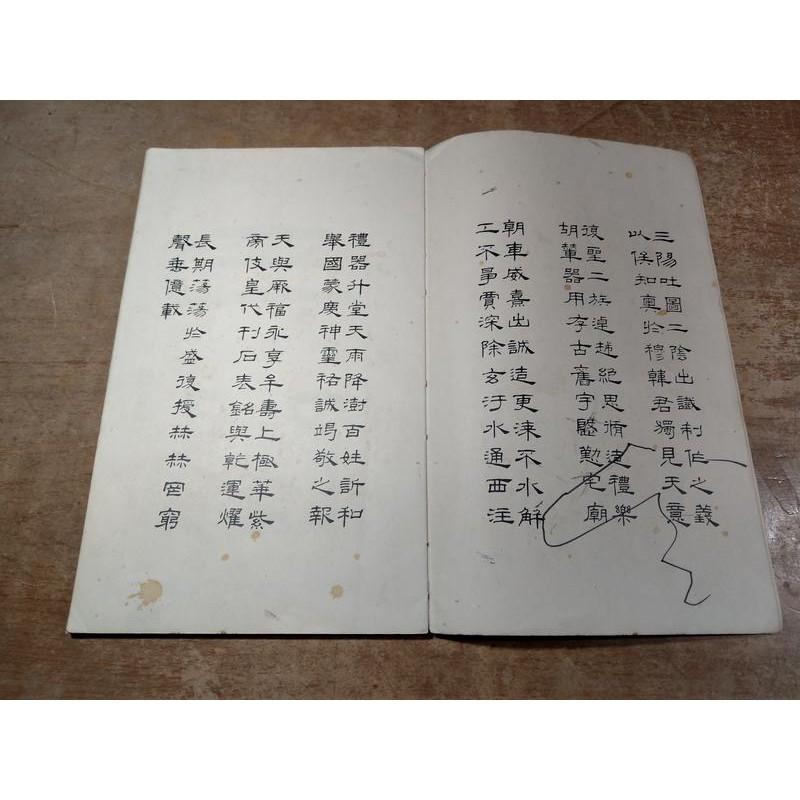 三陽吐圖二陰出讖制作之義
以俟知奧於穆韓君獨見天意
復聖二族逴越絕思脩造禮樂
胡輦器用存古舊宇慇懃宅廟
朝車威熹出誠造更漆不水解
工不爭賈深除玄汙水通四注
禮器升堂天雨降澍百姓訢和
舉國蒙慶神靈祐誠竭敬之報
天與厥福永享牟壽上極華紫
旁伎皇代刊石表銘與乾運燿
長期蕩蕩於盛復授赫赫罔窮
聲垂億載